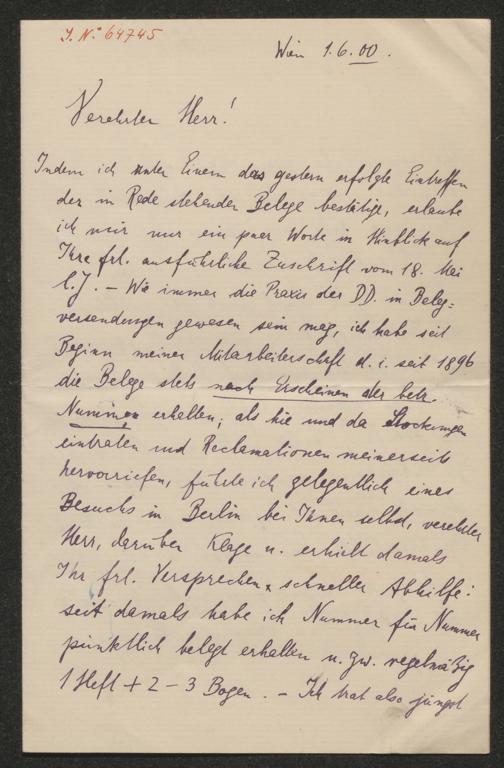 J. N. 64745
Wien 1.6.00.
Verehrter Herr!
Indem ich unter Einem das gestern erfolgte Eintreffen
der in Rede stehenden Belege bestätige, erlaube
ich mir nur ein paar Worte in Hinblick auf
Ihre frl. ausführliche Zuschrift vom 18. Mai
l. J. – Wie immer die Praxis der DD. in Beleg=
versendungen gewesen sein mag, ich habe seit
Beginn meiner Mitarbeiterschaft d. i. seit 1896
die Belege stets nach Erscheinen der betr.
Nummern erhalten; als hie und da Stockungen
eintraten und Reclamationen meinerseits
hervorriefen, führte ich gelegentlich eines
Besuchs in Berlin bei Ihnen selbst, verehrter
Herr, darüber Klage u. erhielt damals
Ihr frl. Versprechen schneller Abhilfe:
seit damals habe ich Nummer für Nummer
pünktlich belegt erhalten u. zw. regelmäßig
1 Heft + 2 – 3 Bogen. – Ich bat also jüngst